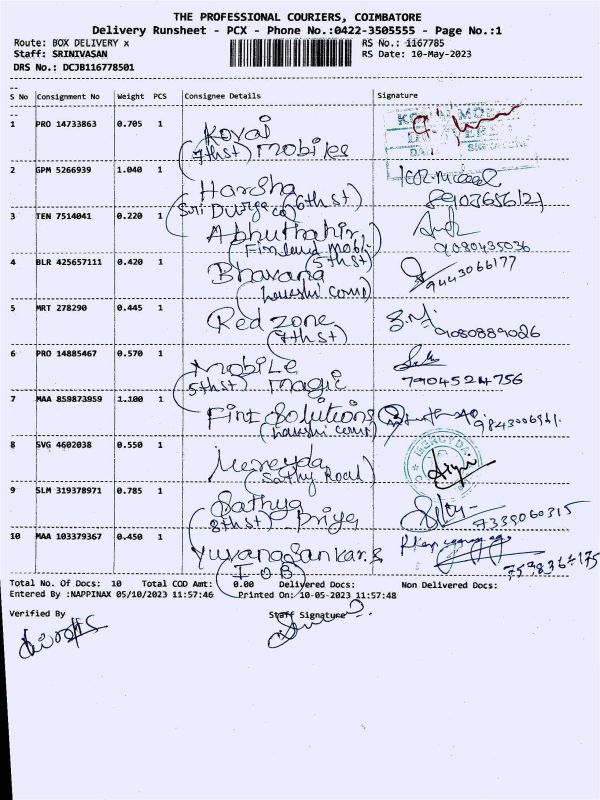 THE PROFESSIONAL COURIERS, COIMBATORE
Delivery Runsheet - PCX - Phone No.:0422-3505555 - Page No.:1
Route: BOX DELIVERY x RS No.: 1167785
Staff: SRINIVASAN RS Date: 10-May-2023
DRS No.: DCJB116778501
S No Consignment No Weight PCS Consignee Details Signature
1 PRO 14733863 0.705 1 Kovai
(7th st) Mobiles
2 GPM 5266939 1.040 1 Harsha
Sri Durga (6th st)
8903656121
3 TEN 7514041 0.220 1 Abhuthahir
(Finland Mobi-
5th st)
9080435036
4 BLR 425657111 0.420 1 Bhavana
(Lakshi comp)
9443066177
5 MRT 278290 0.445 1 Red zone
(7th st)
9080889026
6 PRO 14885467 0.570 1 Mobile
(5th st) magic
7904524756
7 MAA 859873959 1.100 1 Fint Solutions
(Lakshi comp)
8 SVG 4602038 0.550 1 Mercyda
(Sathy Road)
MERCYDA
9 SLM 319378971 0.785 1 Sathya
(8th st) Priya
7339060315
10 MAA 103379367 0.450 1 Yuvana Sankar
(IOB)
Total No. Of Docs: 10 Total COD Amt: 0.00 Delivered Docs: Non Delivered Docs:
Entered By :NAPPINAX 05/10/2023 11:57:46 Printed On: 10-05-2023 11:57:48
Verified By Staff Signature